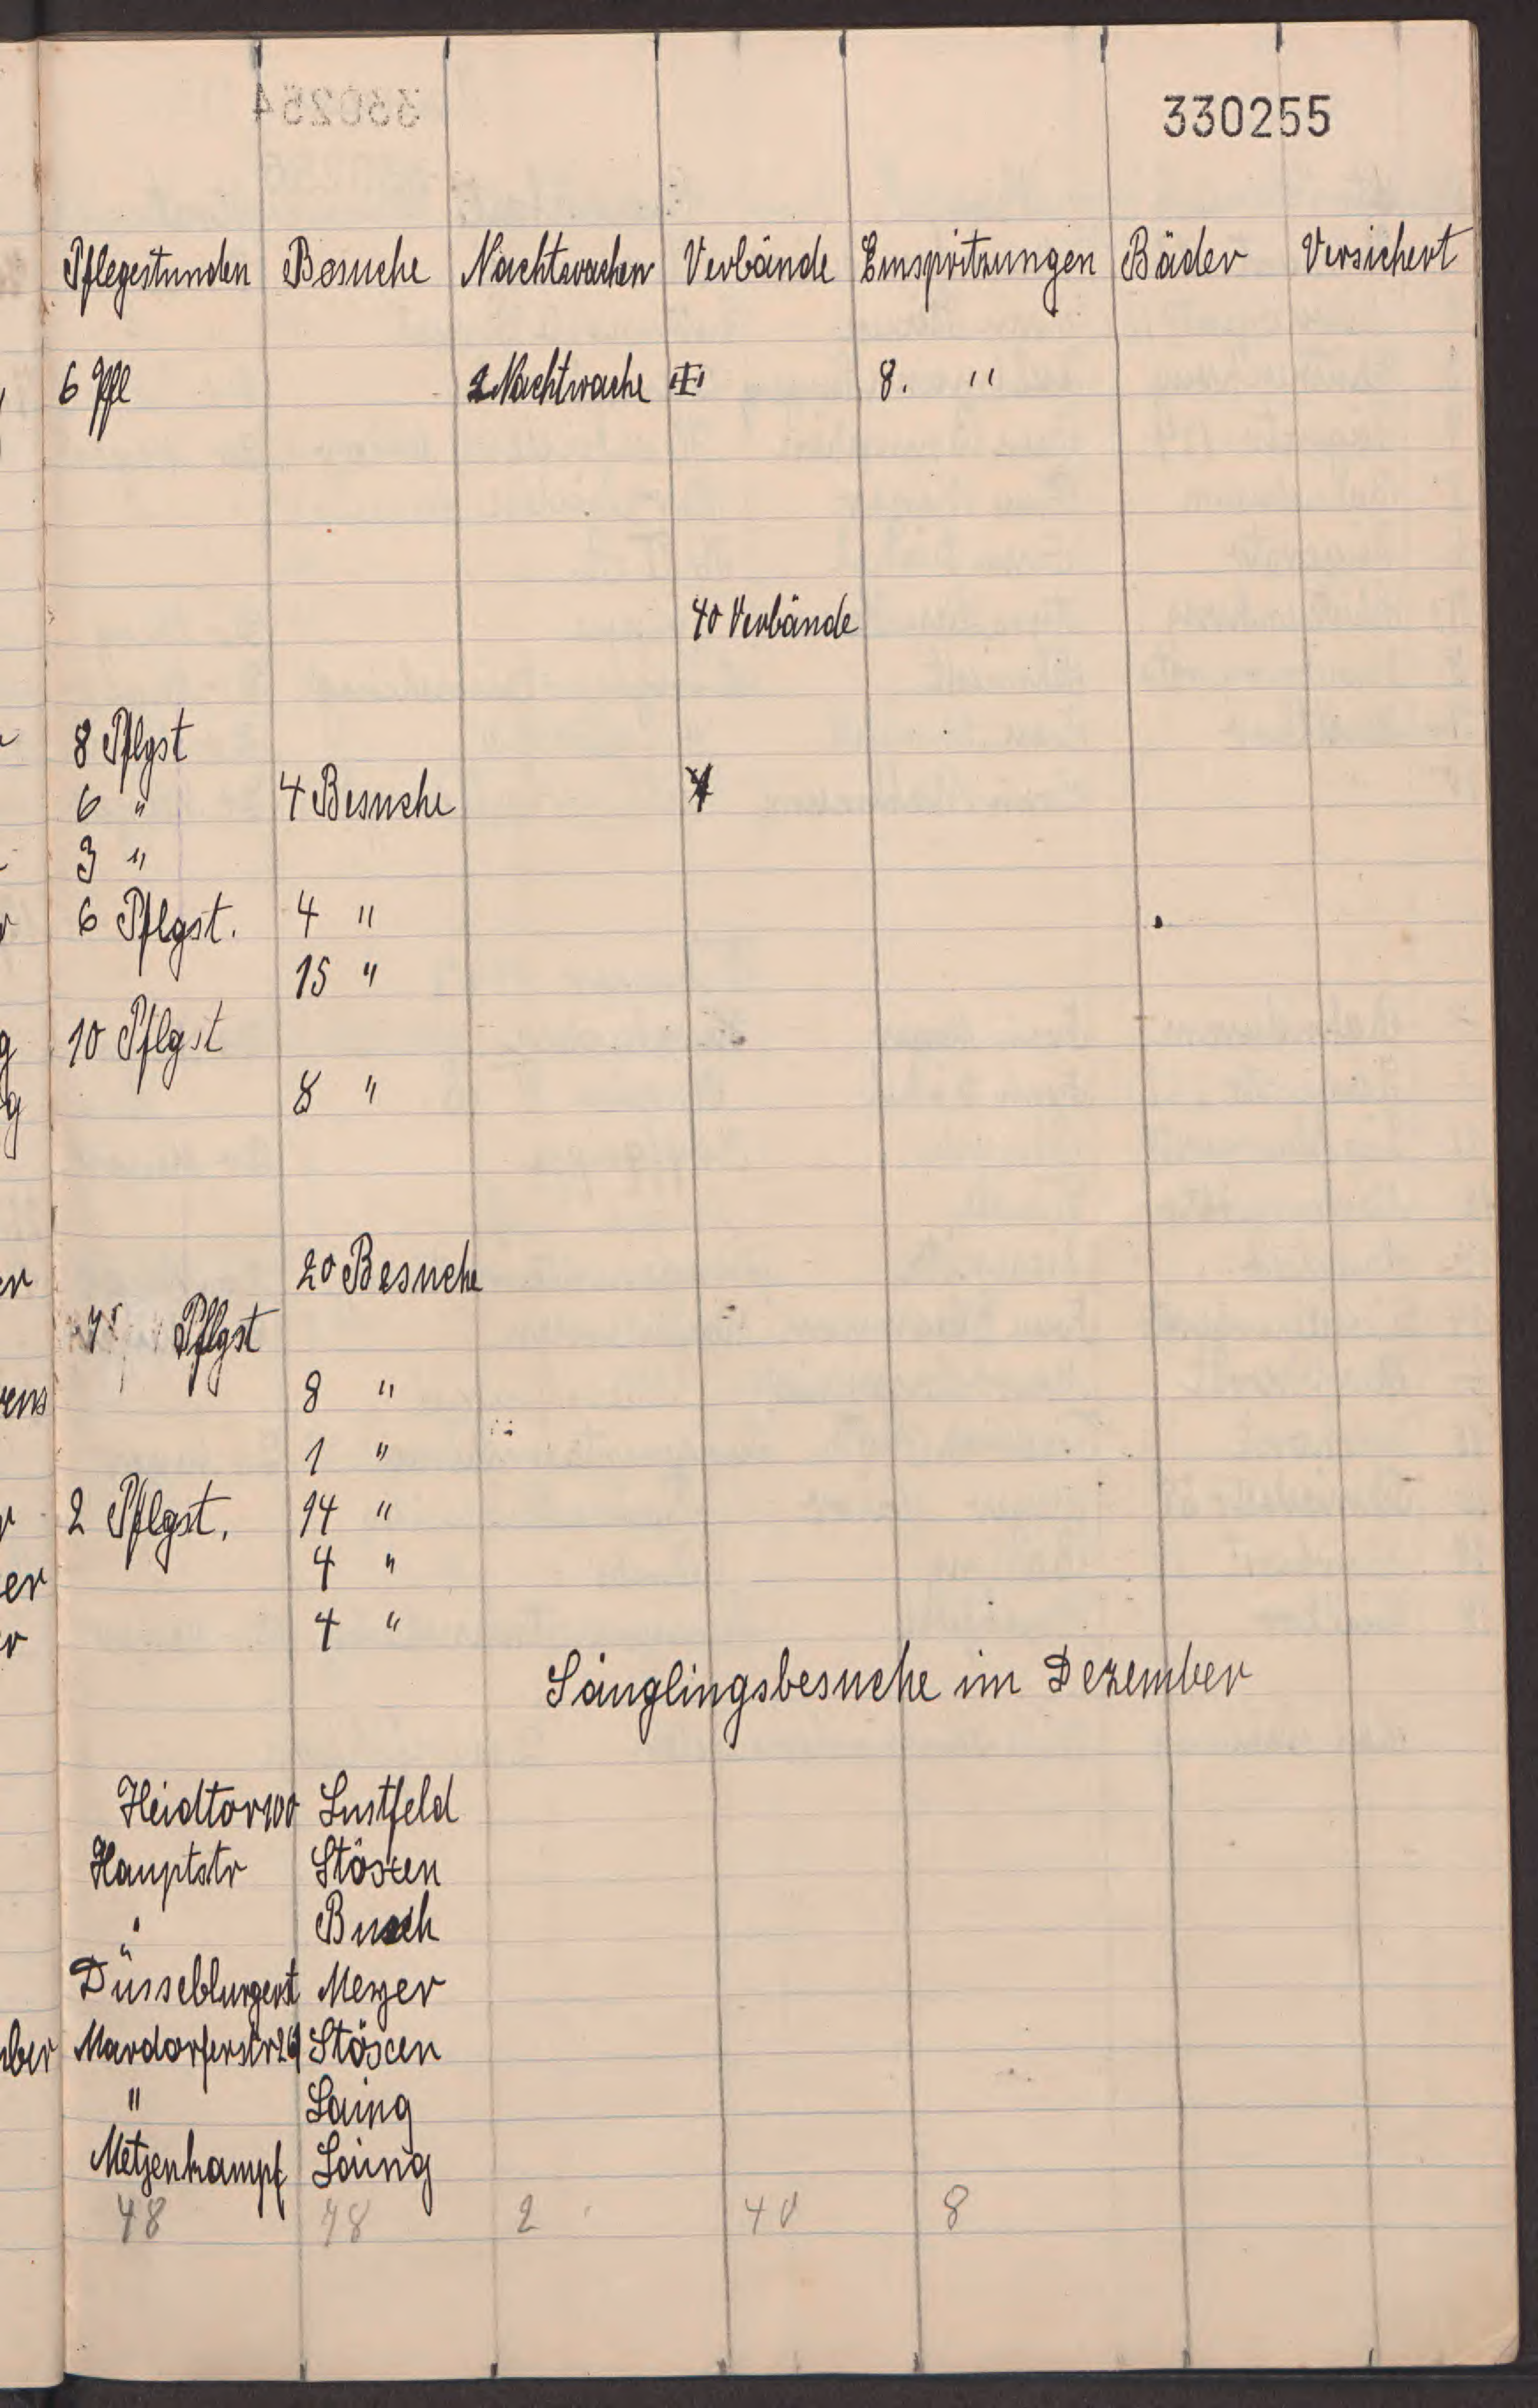 330255
Pflegestunden Besuche Nachtwachen Verbände Einspritzungen Bäder Versichert
6 Pfl 2 Nachtwache 8. "
40 Verbände
8 Pflgst
6 " 4 Besuche
3 "
6 Pflgst. 4 "
15 "
10 Pflgst
8 "
20 Besuche
Pflgst
8 "
1 "
2 Pflgst. 14 "
4 "
4 "
Säuglingsbesuche im Dezember
Heidtor 100 Lustfeld
Hauptstr Stöxen
" Busch
Meyer
Mardorferstr 29 Stöxen
" Laing
Metzenkampf Laing
48 78 2 40 8